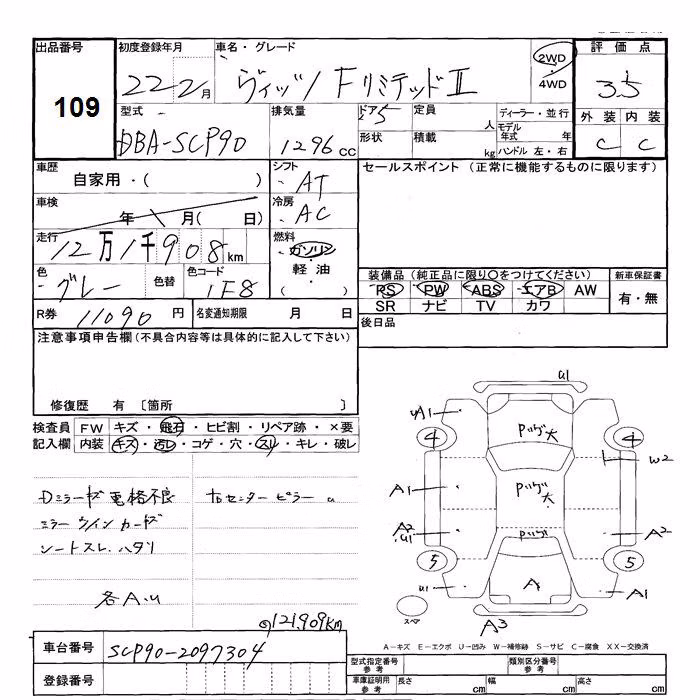 出品番号
109
初度登録年月
22 2月
車名・グレード
ヴィッツ FリミテッドⅡ
2WD
4WD
評価点
3.5
外装 内装
C C
型式
DBA-SCP90
排気量
1296cc
ドア
5
定員
人
形状
積載
kg
ディーラー・並行
モデル年式 年
ハンドル 左・右
車歴
自家用・( )
シフト
AT
セールスポイント (正常に機能するものに限ります)
車検
年 月( 日)
冷房
AC
走行
12万1千908km
燃料
ガソリン
軽油
( )
色
グレー
色替
色コード
1F8
装備品 (純正品に限り○をつけてください)
PS PW ABS エアB AW
SR ナビ TV カワ
新車保証書
有・無
R券 11090円
名変通知期限 月 日
後日品
注意事項申告欄 (不具合内容等は具体的に記入して下さい)
修復歴 有 〔箇所 〕
検査員記入欄
FW キズ・飛石・ヒビ割・リペア跡・×要
内装 キズ・汚レ・コゲ・穴・スレ・キレ・破レ
Dミラーキズ 電格不良
ミラーウインカーキズ
シートスレ、ハタリ
各A.U
センターピラー u
@121,909km
U1
UA1
4
4
Pハゲ大
W2
A1
Pハゲ大
A2
U1
Pハゲ
A2
5
5
U1
A
A1
スペア
A3
A-キズ E-エクボ U-凹み W-補修跡 S-サビ C-腐食 XX-交換済
車台番号
SCP90-2097304
登録番号
型式指定番号
参考
類別区分番号
参考
車庫証明用
参考
長さ cm
幅 cm
高さ cm